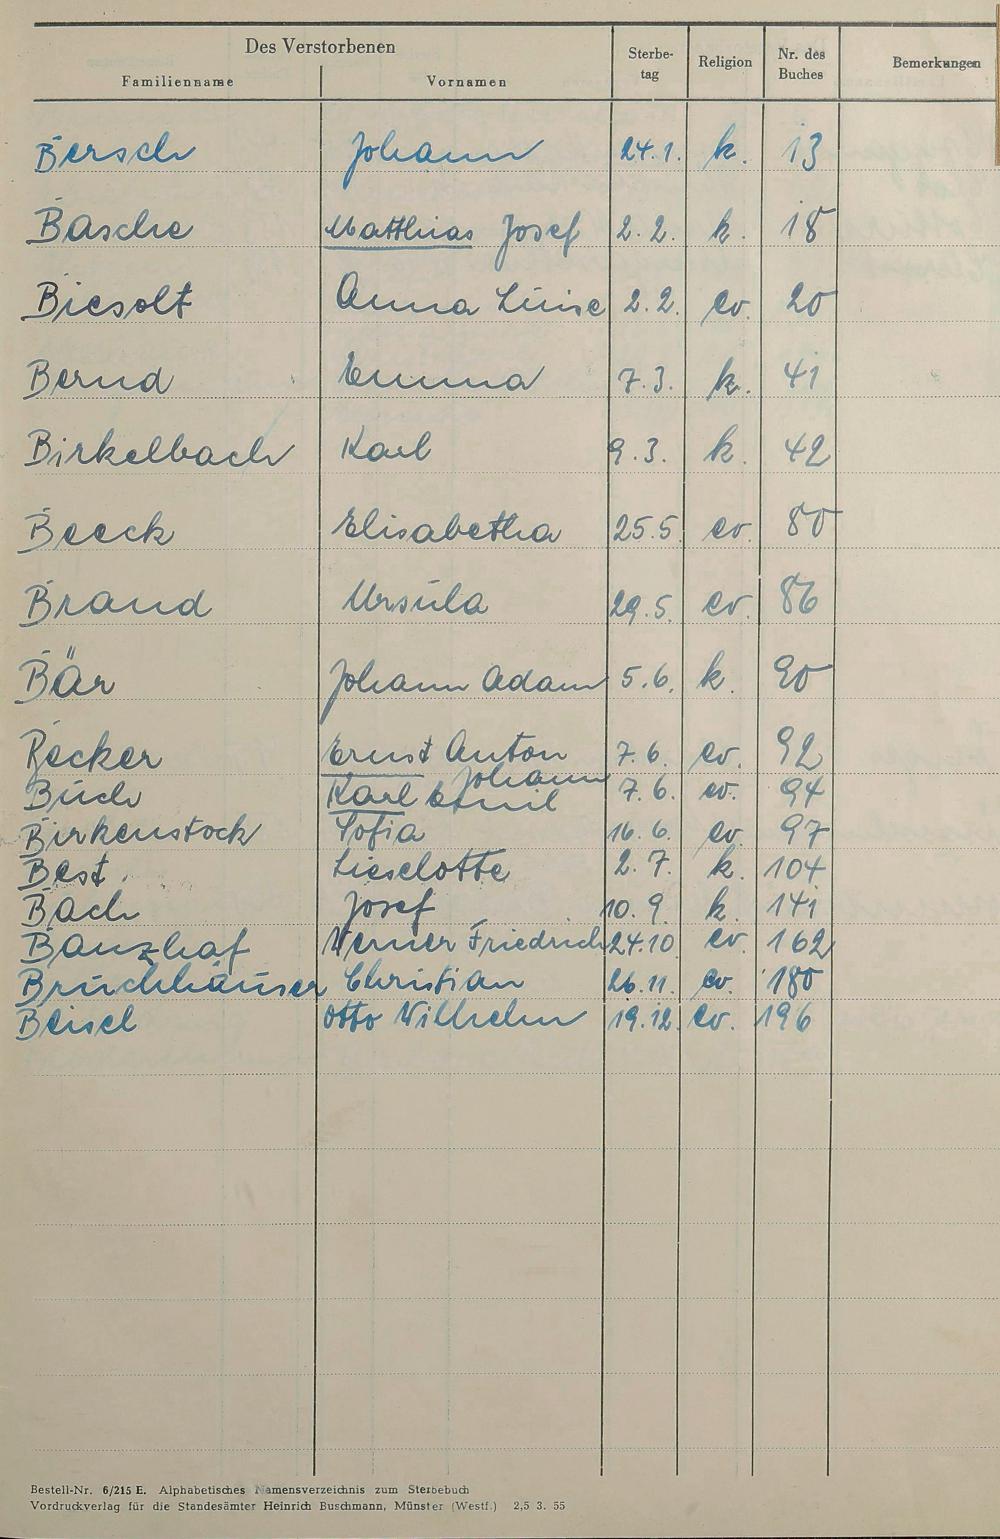 Des Verstorbenen
Familienname Vornamen Sterbe-tag Religion Nr. des Buches Bemerkungen
Bersch Johann 24.1. k. 13
Basche Matthias Josef 2.2. k. 18
Biesolt Anna Luise 2.2. ev. 20
Bernd Emma 7.3. k. 41
Birkelbach Karl 9.3. k. 42
Beeck Elisabetha 25.5. ev. 80
Brand Ursula 29.5. ev. 86
Bär Johann Adam 5.6. k. 90
Becker Ernst Anton 7.6. ev. 92
Johann
Buch Karl Emil 7.6. ev. 94
Birkenstock Sofia 16.6. ev. 97
Best. Lieselotte 2.7. k. 104
Bach Josef 10.9. k. 141
Banzhaf Werner Friedrich 24.10 ev. 162
Bruchhäuser Christian 26.11. ev. 180
Beisel Otto Wilhelm 19.12. ev. 196
Bestell-Nr. 6/215 E. Alphabetisches Namensverzeichnis zum Sterbebuch
Vordruckverlag für die Standesämter Heinrich Buschmann, Münster (Westf.) 2,5 3. 55